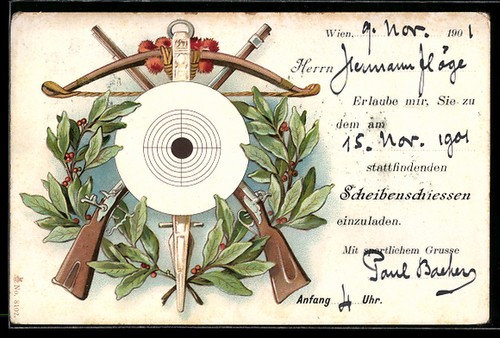 Wien, 9. Nov. 1901
Herrn Hermann Flöge
Erlaube mir, Sie zu
dem am
15. Nov. 1901
stattfindenden
Scheibenschiessen
einzuladen.
Mit sportlichem Grusse
Paul Backer
Anfang 4 Uhr.
No. 8102.